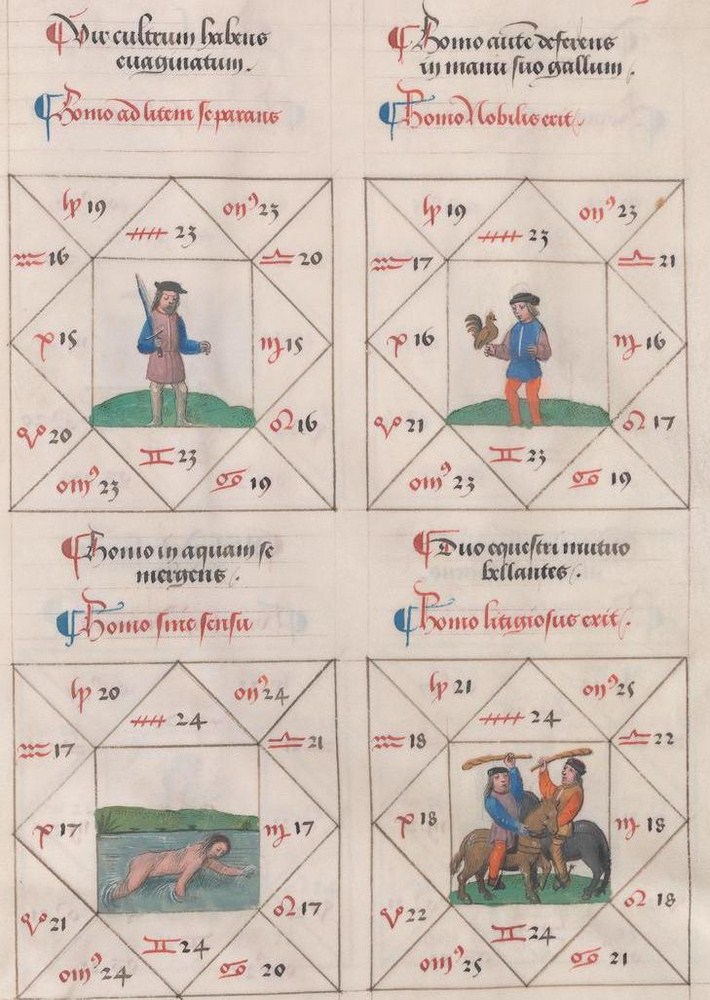 Vir cultrum habens
euaginatum.
Homo ad litem se parans
Homo autẽ deferens
in manu suo gallum.
Homo Nobilis erit.
lp 19
onꝰ 23
♓ 23
♒ 16
♎ 20
p 15
♏ 15
♈ 20
♌ 16
♊ 23
omꝰ 23
♋ 19
lp 19
onꝰ 23
♓ 23
♒ 17
♎ 21
p 16
♏ 16
♈ 21
♌ 17
♊ 23
omꝰ 23
♋ 19
Homo in aquam se
mergens.
Homo sine sensu
Duo equestri mutuo
bellantes.
Homo litigiosus erit.
lp 20
onꝰ 24
♓ 24
♒ 17
♎ 21
p 17
♏ 17
♈ 21
♌ 17
♊ 24
omꝰ 24
♋ 20
lp 21
onꝰ 25
♓ 24
♒ 18
♎ 22
p 18
♏ 18
♈ 22
♌ 18
♊ 24
omꝰ 25
♋ 21